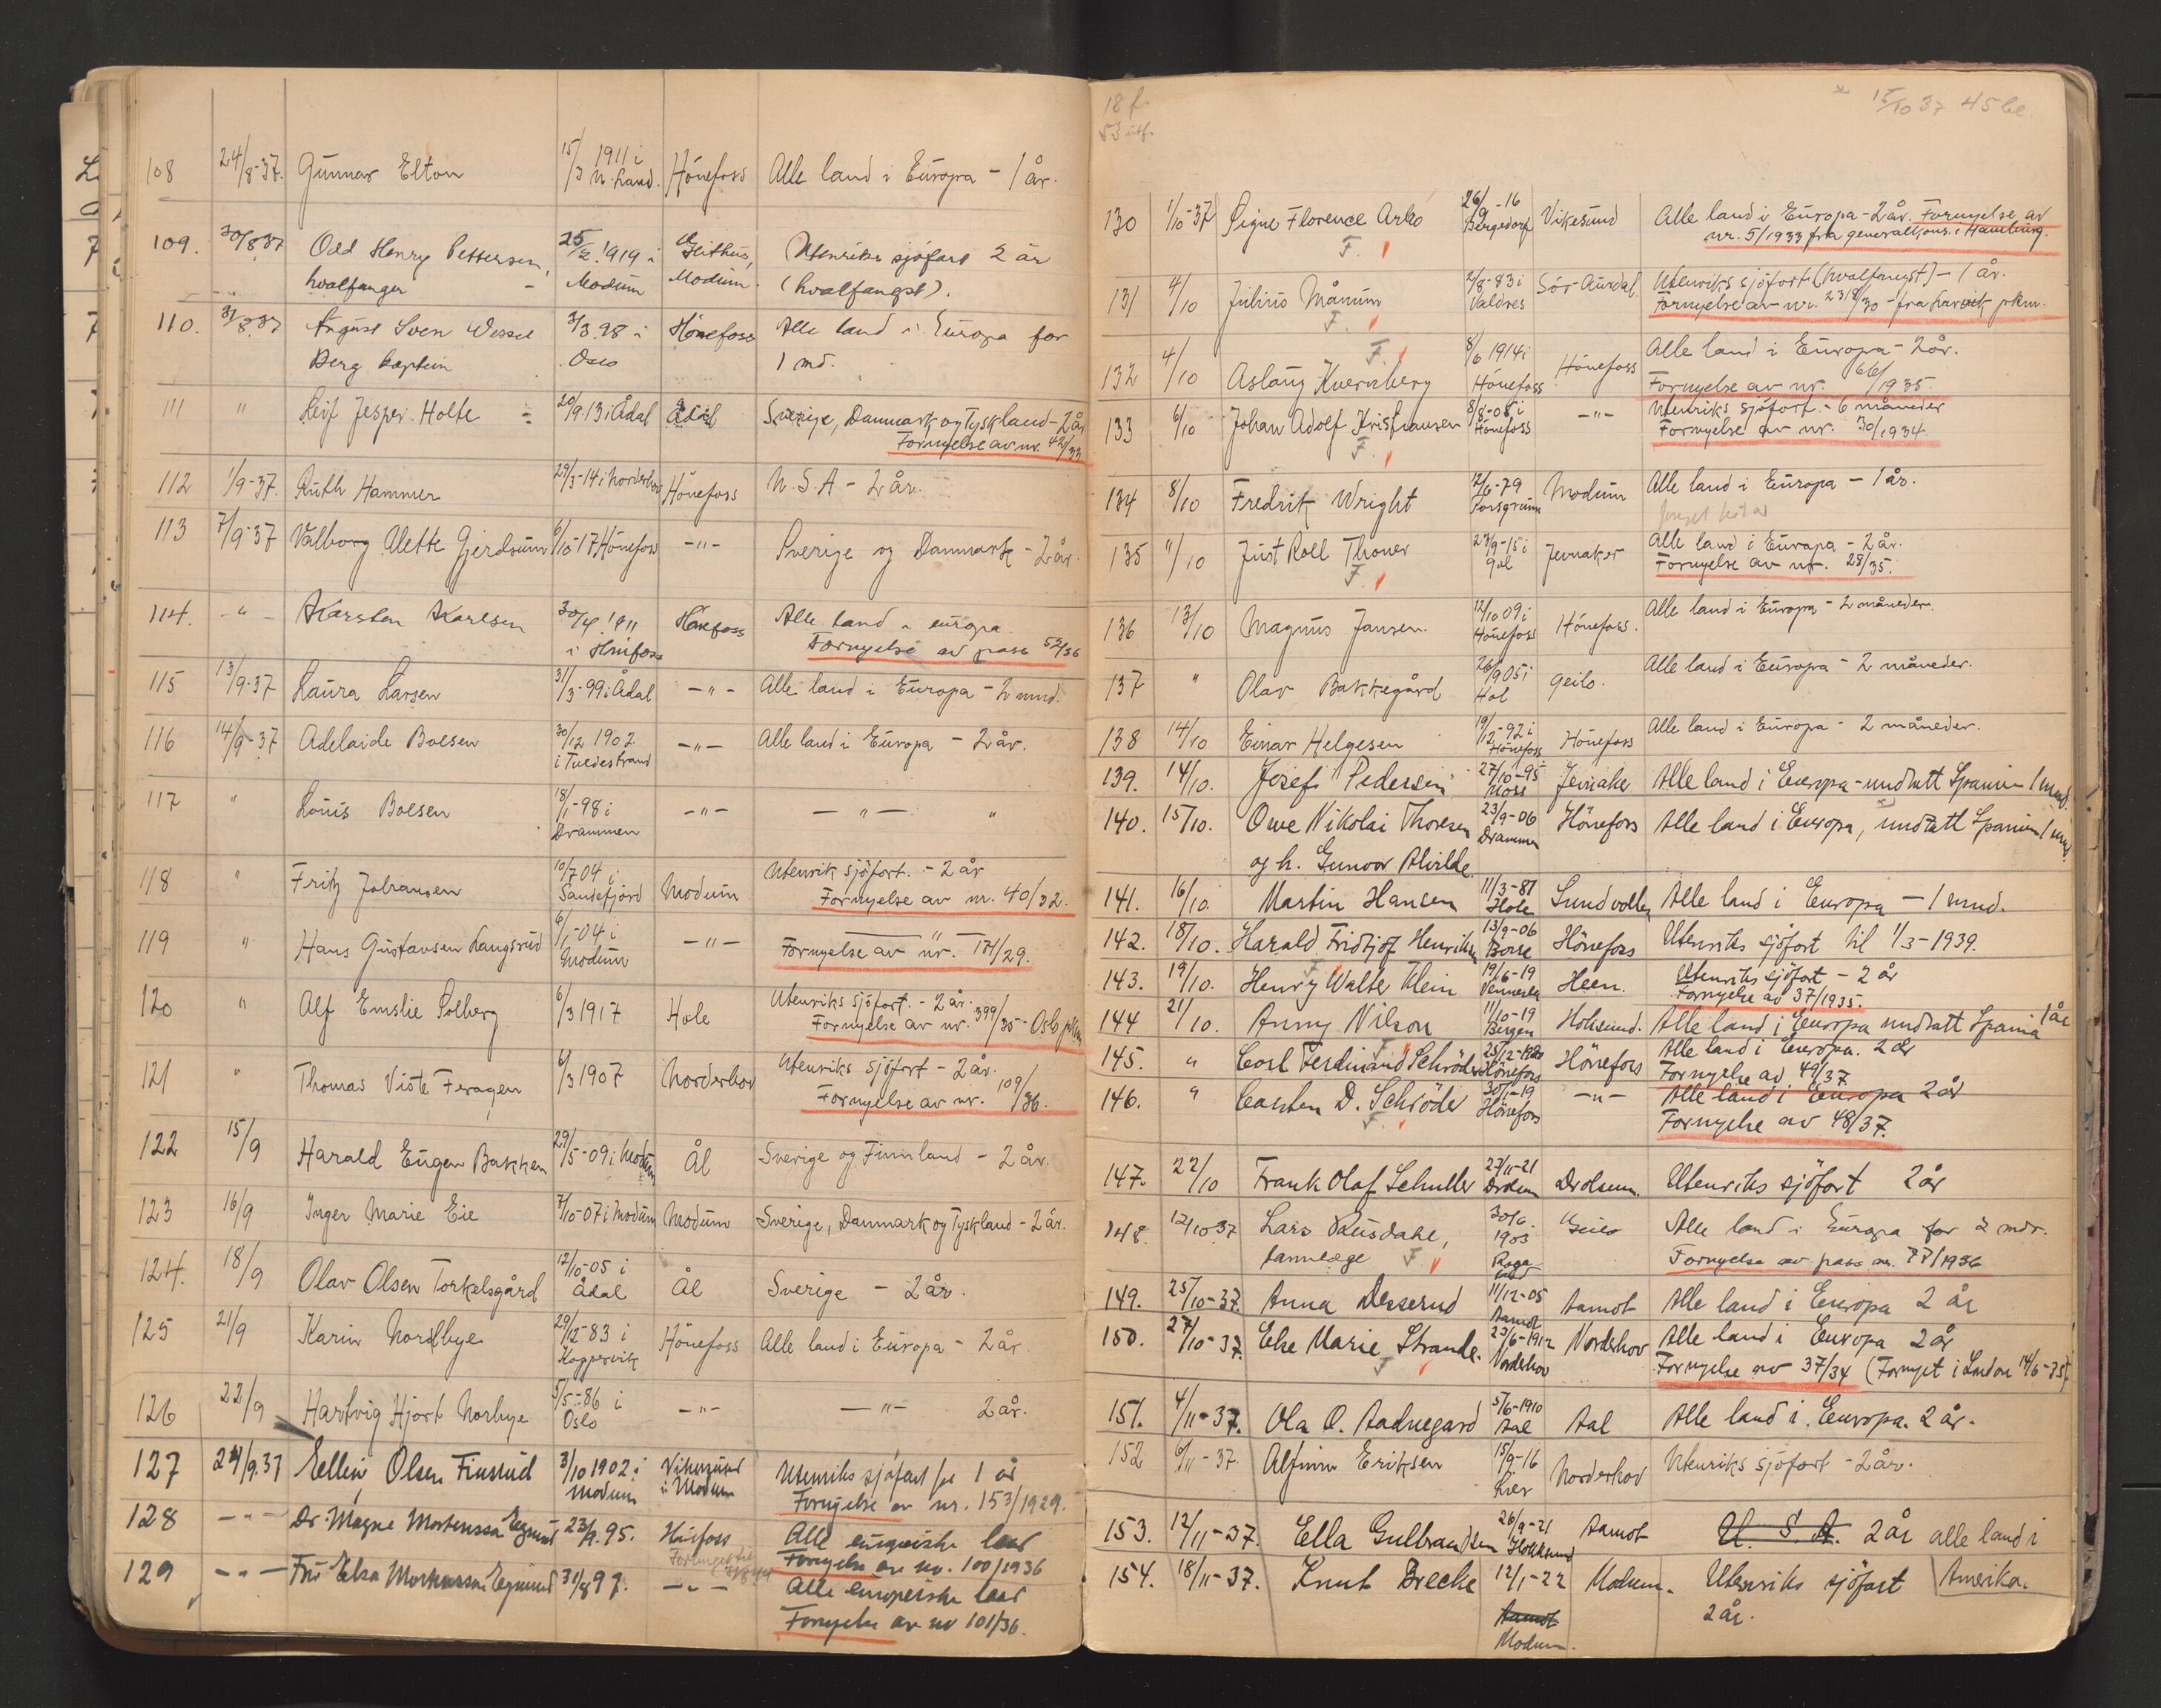 108 24/8-37. Gunnar Elton 15/3 1911 i N. Land. Hönefoss Alle land i Europa - 1 år.
109. 30/8 37 Odd Henry Pettersen, 25/2. 1919 i Geithus, Utenriks sjöfart 2 år
hvalfanger - Modum Modum. (hvalfangst).
110. 31/8 37 August Sven Wessel 3/3 98 i Hönefoss Alle land i Europa for
Berg kaptein Oslo 1 md.
111 " Leif Jesper Holte 20/9. 13 i Ådal Ådal Sverige, Danmark og Tyskland - 2 år
Fornyelse av nr. 42/33
112 1/9-37. Ruth Hammer 29/3-14 i Norderhov Hönefoss U.S.A - 2 år.
113 7/9-37 Valborg Alette Gjerdrum 6/10-17 Hönefoss -"- Sverige og Danmark - 2 år.
114. -"- Karsten Karlsen 30/4 1911 Hönefoss Alle land i europa.
i Hönefoss Fornyelse av pass 52/36
115 13/9-37 Laura Larsen 31/3-99 i Ådal -"- Alle land i Europa - 2 mnd.
116 14/9-37 Adelaide Boesen 30/12 1902 -"- Alle land i Europa - 2 år.
i Tvedestrand
117 " Louis Boesen 18/1-98 i -"- -"- "
Drammen
118 " Fritz Johansen 10/7 04 i Modum Utenrik sjöfart. - 2 år
Sandefjord Fornyelse av nr. 40/32.
119 " Hans Gustavsen Langsrud 6/1-04 i -"- -"-
Modum Fornyelse av nr. 174/29.
120 " Alf Emslie Solberg 6/3 1917 Hole Utenriks sjöfart. - 2 år.
Fornyelse av nr. 399/35 - Oslo pkm
121 " Thomas Viste Feragen 6/3 1907 Norderhov Utenriks sjöfart - 2 år.
Fornyelse av nr. 109/36.
122 15/9 Harald Eugen Bakken 29/5-09 i Modum Ål Sverige og Finnland - 2 år.
123 16/9 Inger Marie Eie 7/10-07 i Modum Modum Sverige, Danmark og Tyskland - 2 år.
124. 18/9 Olav Olsen Torkelsgård 12/10-05 i Ådal Ål Sverige - 2 år.
125 21/9 Karin Nordbye 29/12-83 i Hönefoss Alle land i Europa - 2 år.
Koppervik
126 22/9 Hartvig Hjort Norbye 5/5-86 i Oslo -"- -"- 2 år.
127 24/9.37 Ellen Olsen Finsrud 3/10 1902 i Vikersund Utenriks sjöfart for 1 år
Modum i Modum Fornyelse av nr. 153/1929.
128 -"- Dr. Magne Mortensson Egnund 23/9. 95. Hönefoss Alle europeiske land
Fornyelse av nr. 100/1936
129 -"- Fru Elsa Mortensson Egnund 31/8 97. -"- Alle europeiske land
Fornyelse av nr 101/36.
18 f.
53 utf.
15/10 37 45 be.
130 1/10-37 Signe Florence Arbo 26/9-16 Vikesund Alle land i Europa - 2 år. Fornyelse av
F. Bergedorf nr. 5/1933 fra generalkons. i Hamburg.
131 4/10 Julius Månum 2/8-83 i Sör-Aurdal Utenriks sjöfart (hvalfangst) - 1 år.
F. Valdres Fornyelse av nr. 2318/30 - fra Larvik pkm.
132 4/10 F. Aslaug Kvernberg 8/6 1914 i Hönefoss Alle land i Europa - 2 år.
Hönefoss Fornyelse av nr. 66/1935.
133 6/10 Johan Adolf Kristiansen 8/8-05 i -"- Utenriks sjöfart. - 6 måneder
F. Hönefoss Fornyelse av nr. 30/1934
134 8/10 Fredrik Wright 12/6-79 Modum Alle land i Europa - 1 år.
Porsgrunn
135 11/10 Just Roll Thoner 23/9-15 i Jevnaker Alle land i Europa - 2 år.
F. Gol Fornyelse av nr. 28/35.
136 13/10 Magnus Jansen. 12/10 09 i Hönefoss. Alle land i Europa - 2 måneder.
Hönefoss
137 " Olav Bakkegård 26/9 05 i Geilo. Alle land i Europa - 2 måneder.
Hol
138 14/10 Einar Helgesen 19/12-92 i Hönefoss Alle land i Europa - 2 måneder.
Hönefoss
139. 14/10. Josef Pedersen 27/10-95 Jevnaker Alle land i Europa - undtatt Spanien 1 mnd.
Moss
140. 15/10. Owe Nikolai Thoresen 23/9-06 Hönefoss Alle land i Europa, undtatt Spanien 1 mnd.
og h. Gunvor Alvilde Drammen
141. 16/10. Martin Hansen 11/3-87 Hole Sundvollen Alle land i Europa - 1 mnd.
142. 18/10. Harald Fridtjof Henriksen 13/9-06 Borre Hönefoss Utenriks sjöfart til 1/3-1939.
143. 19/10. Henry Walter Klein 19/6-19 Heen. Utenriks sjöfart - 2 år
Vennesla Fornyelse av 37/1935.
144 21/10. Anny Nilson 11/10-19 Bergen Hoksund. Alle land i Europa undtatt Spania 1 år
145. " Carl Ferdinand Schröder 25/12-1920 Hönefoss Alle land i Europa. 2 år
F Hönefoss Fornyelse av 49/37
146. " Carsten D. Schröder 30/1-19 -"- Alle land i Europa 2 år
F. Hönefoss Fornyelse av 48/37.
147. 22/10 Frank Olaf Schuller 27/11-21 Drolsum. Utenriks sjöfart 2 år
148. 12/10 37 Lars Ruisdahl, 30/6 1903 Geilo Alle land i Europa for 2 mdr.
tannlæge F Rogaland Fornyelse av pass nr. 77/1936
149. 25/10-37. Anna Desserud 11/12-05 Aamot Aamot Alle land i Europa 2 år
150. 27/10-37. Else Marie Strande. 23/6-1912 Norderhov Alle land i Europa 2 år
F Norderhov Fornyelse av 37/34 (Fornyet i London 14/6-35)
151. 4/11-37. Ola O. Aadnegard 5/6-1910 Aal Aal Alle land i Europa. 2 år.
152 6/11-37. Alfinn Eriksen 15/9-16 Lier Norderhov Utenriks sjöfart - 2 år.
153. 12/11-37. Ella Gulbrandsen 26/9-21 Hokksund Aamot U.S.A. 2 år alle land i
Amerika.
154. 18/11-37. Knut Brecke 12/1-22 Modum. Utenriks sjöfart
Aamot 2 år.
Modum.